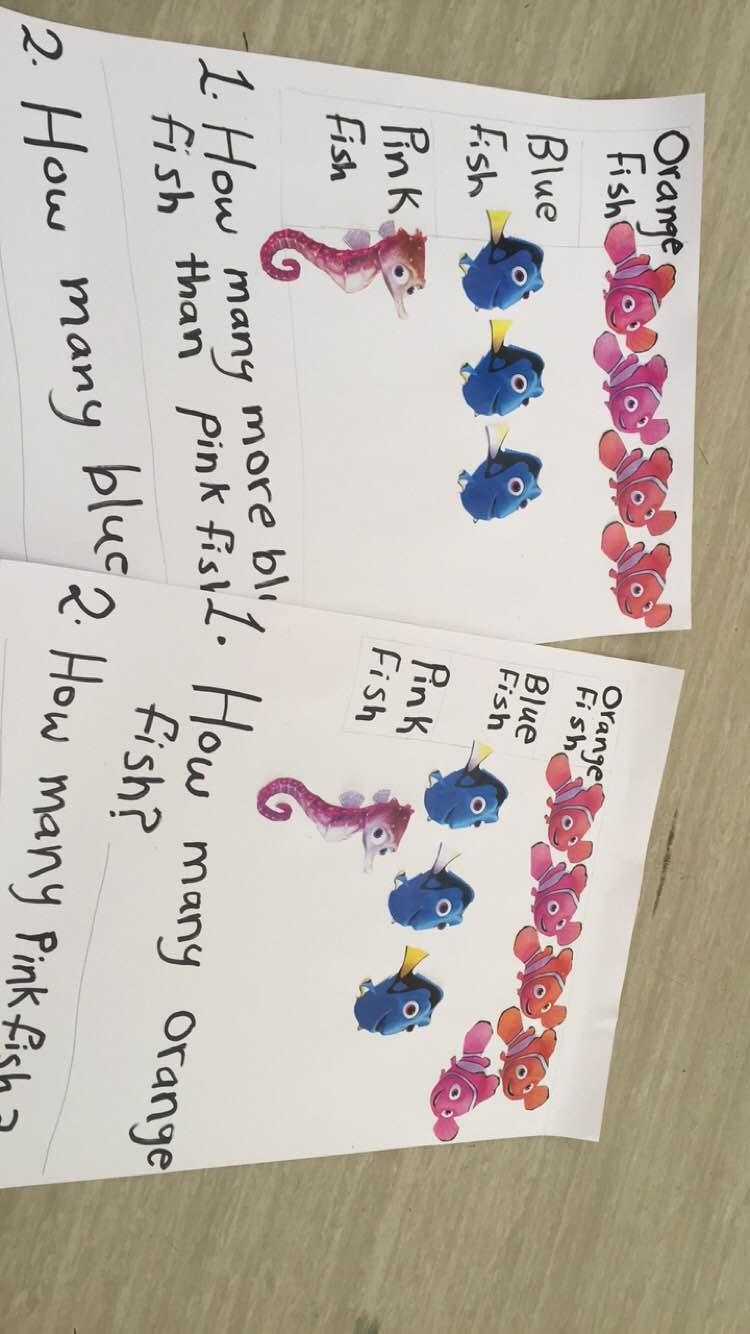 Orange
Fish
Blue
Fish
Pink
Fish
1. How many more
fish than pink fish
2. How many blue
Orange
Fish
Blue
Fish
Pink
Fish
1. How many orange
fish?
2. How many Pink fish?